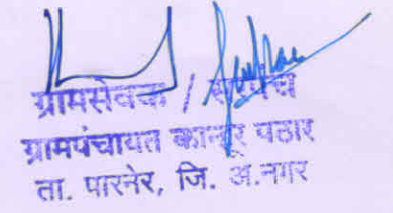 ग्रामसेवक / सरपंच
ग्रामपंचायत कान्हूर पठार
ता. पारनेर, जि. अ.नगर